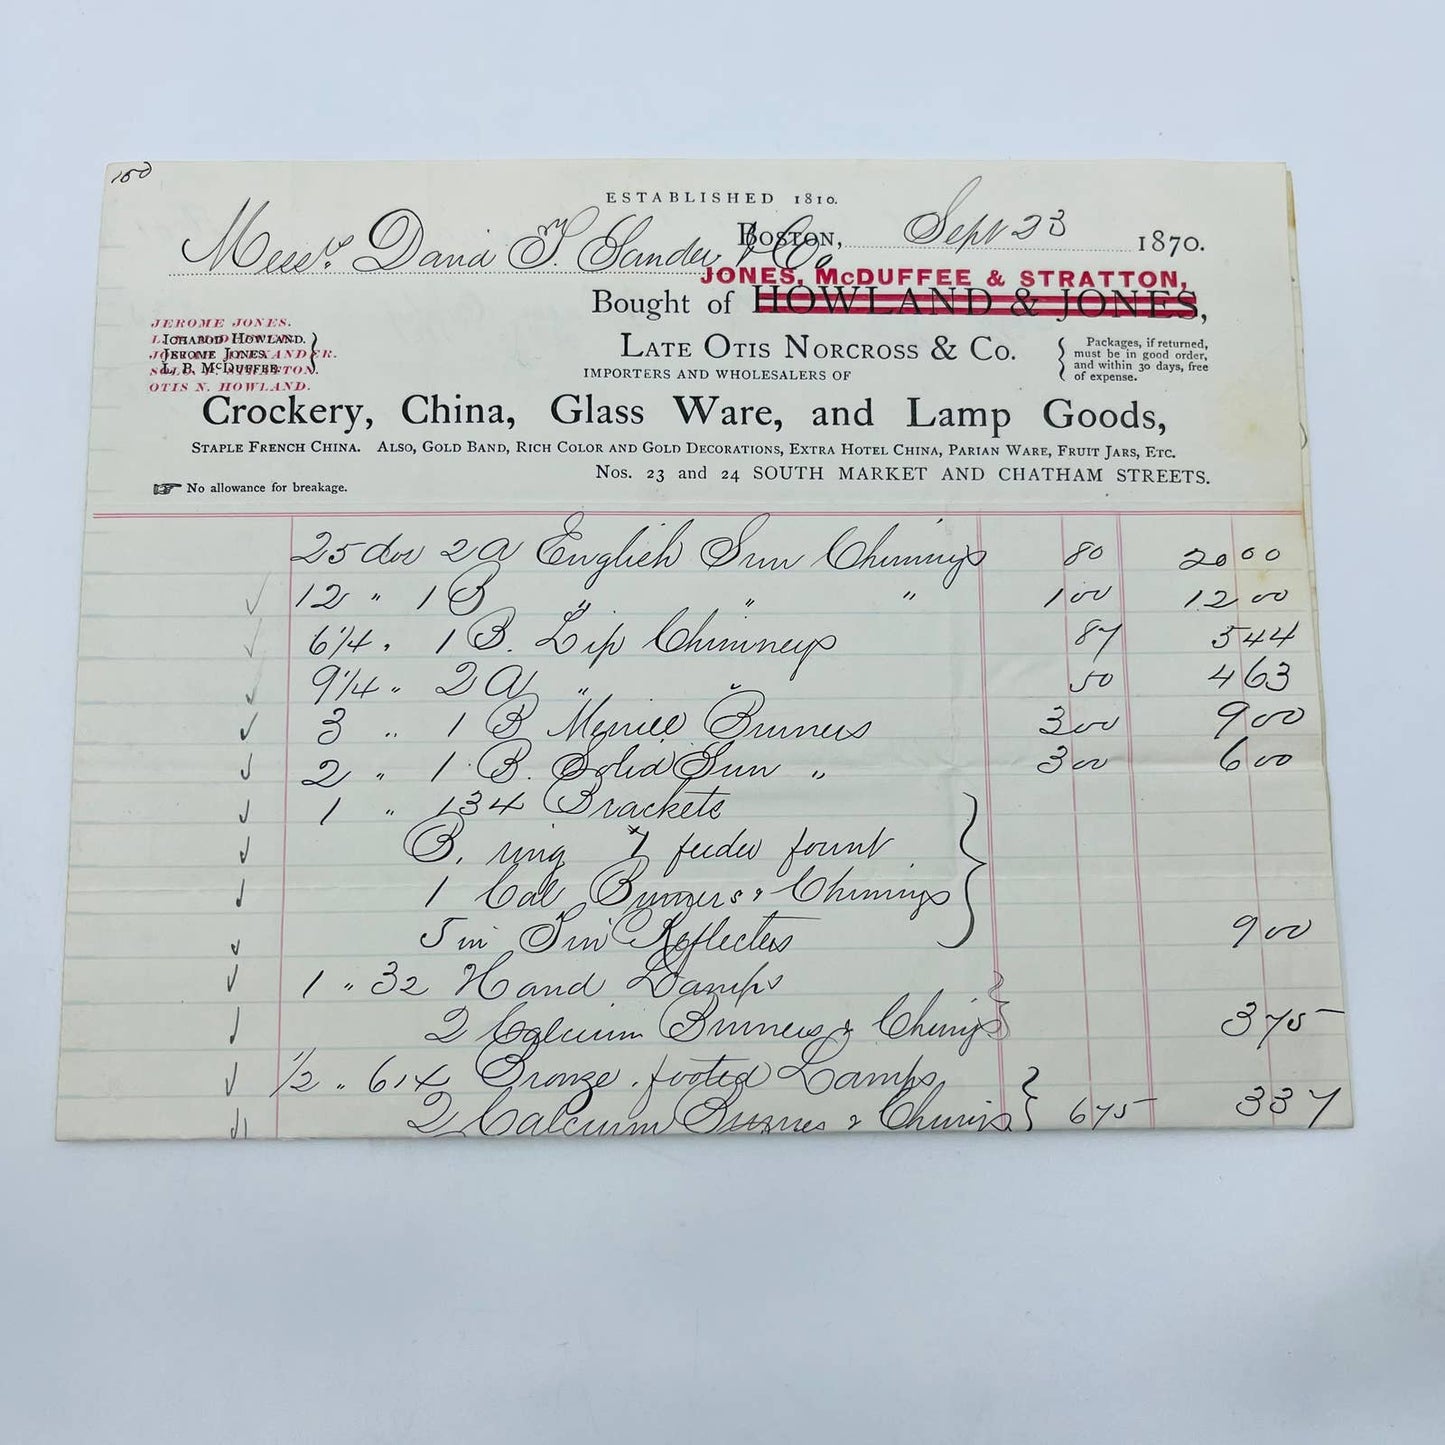 150
ESTABLISHED 1810.
Boston, Sept 23 1870.
Messrs. David T. Sander & Co
JONES, McDUFFEE & STRATTON,
Bought of HOWLAND & JONES,
JEROME JONES.
Ichabod Howland.
Jerome Jones.
L. B. McDuffee.
OTIS N. HOWLAND.
Late Otis Norcross & Co.
Packages, if returned,
must be in good order,
and within 30 days, free
of expense.
IMPORTERS AND WHOLESALERS OF
Crockery, China, Glass Ware, and Lamp Goods,
Staple French China. Also, Gold Band, Rich Color and Gold Decorations, Extra Hotel China, Parian Ware, Fruit Jars, Etc.
Nos. 23 and 24 SOUTH MARKET AND CHATHAM STREETS.
No allowance for breakage.
25 dos 2 A English Sun Chimnys 80 20 00
12 " 1 B " " " 1 00 12 00
6 1/4 " 1 B. Lip Chimneys 87 5 44
9 1/4 " 2 A " " 50 4 63
3 " 1 B Merrill Burners 3 00 9 00
2 " 1 B. Solid Sun " 3 00 6 00
1 " 134 Brackets
B. ring feeder fount
1 Cal Burners & Chimnys
5 in Tin Reflecters 9 00
1 " 32 Hand Lamps
2 Calcium Burners & Chimys 3 75
1/2 " 614 Bronze footed Lamps
2 Calcium Burnes & Chimys 6 75 3 37